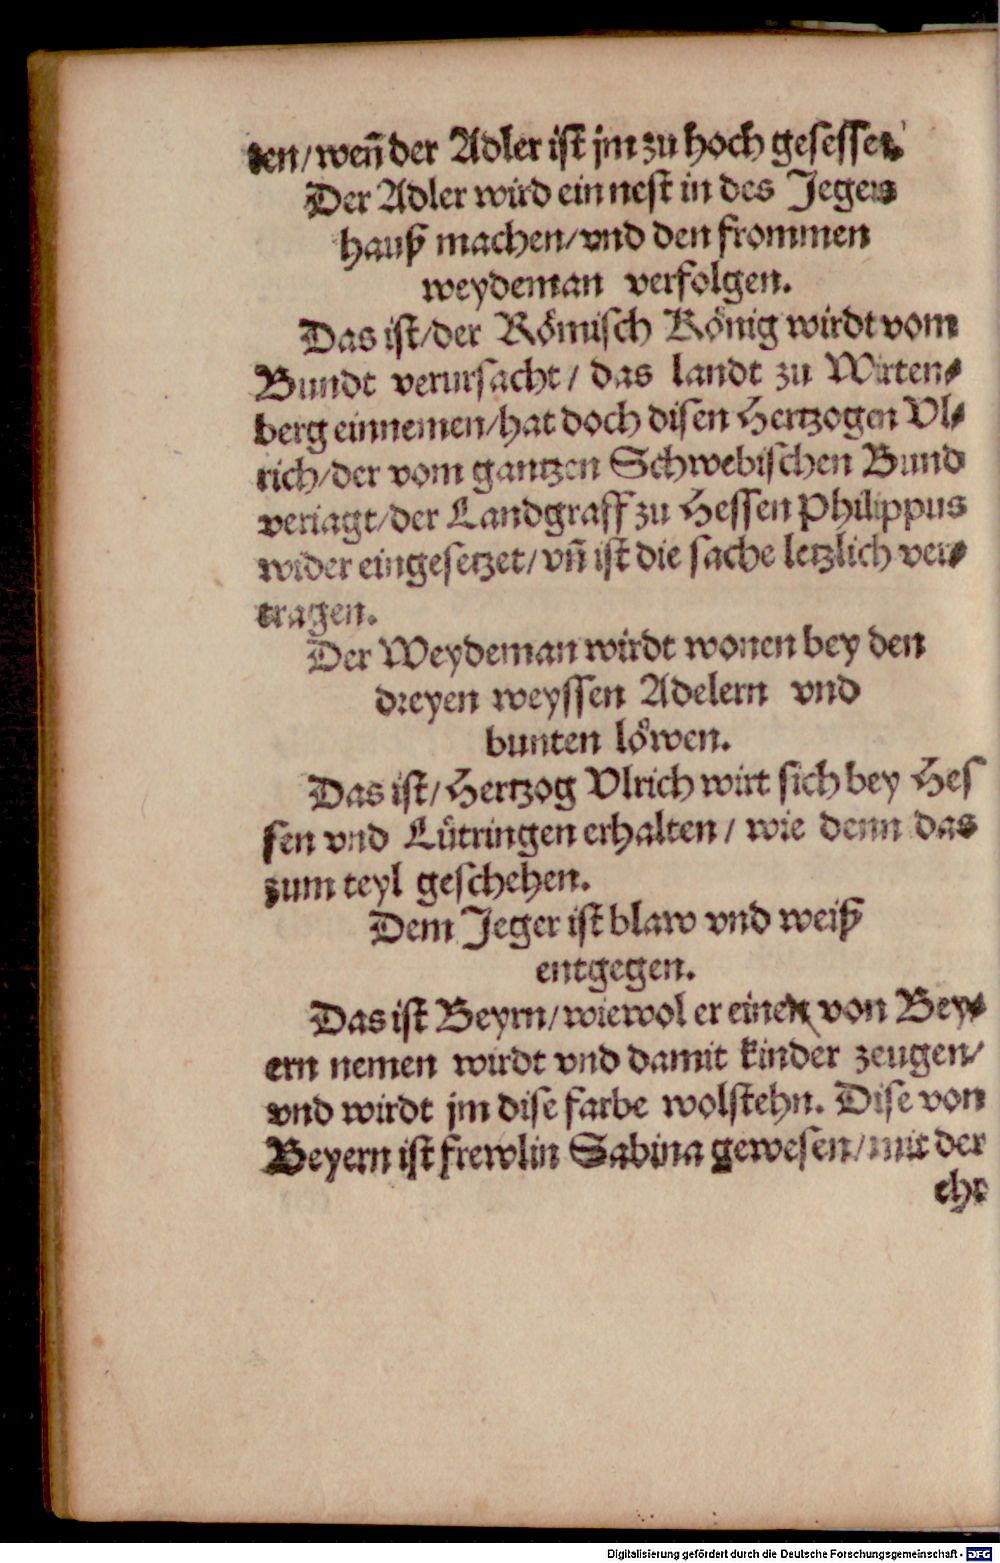 ten/ weñ der Adler ist jm zu hoch gesessen.
Der Adler wird ein nest in des Jegers
hauß machen/ vnd den frommen
weydeman verfolgen.
Das ist/ der Römisch König wirdt vom
Bundt verursacht/ das landt zu Wirten⸗
berg einnemen/ hat doch disen Hertzogen Vl⸗
rich/ der vom gantzen Schwebischen Bund
veriagt/ der Landgraff zu Hessen Philippus
wider eingesetzet/ vñ ist die sache letzlich ver⸗
tragen.
Der Weydeman wirdt wonen bey den
dreyen weyssen Adelern vnd
bunten löwen.
Das ist/ Hertzog Vlrich wirt sich bey Hes
sen vnd Lütringen erhalten/ wie denn das
zum teyl geschehen.
Dem Jeger ist blaw vnd weiß
entgegen.
Das ist Beyrn/ wiewol er einen von Bey⸗
ern nemen wirdt vnd damit kinder zeugen/
vnd wirdt jm dise farbe wolstehn. Dise von
Beyern ist frewlin Sabina gewesen/ mit der
ehr
Digitalisierung gefördert durch die Deutsche Forschungsgemeinschaft - DFG